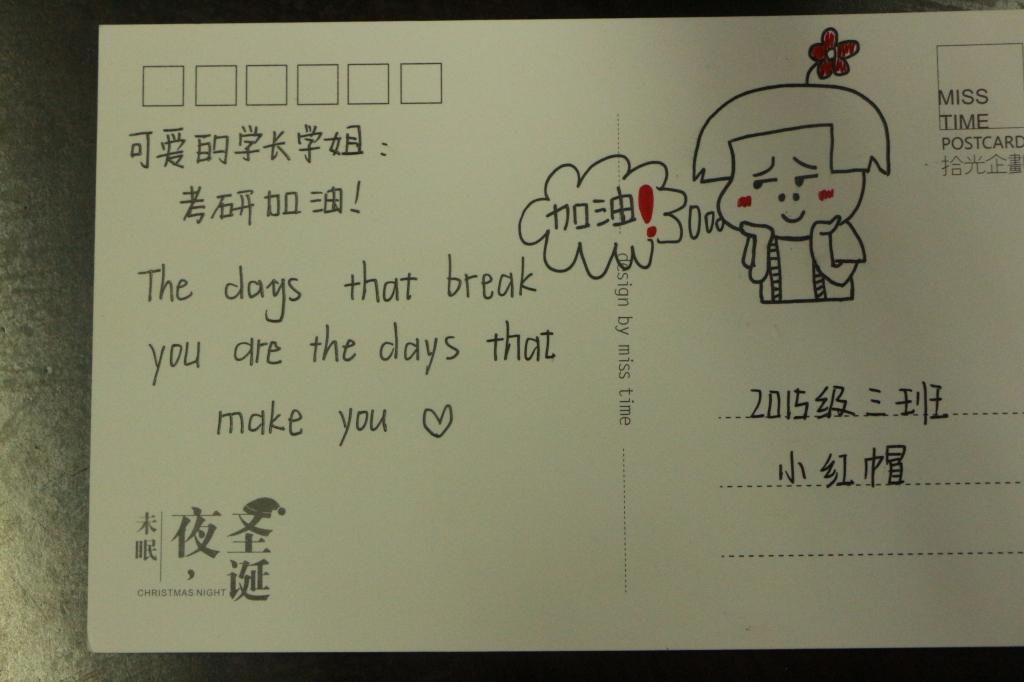 可爱的学长学姐：
考研加油！
The days that break
you are the days that
make you ♡
加油！
MISS
TIME
POSTCARD
拾光企劃
design by miss time
2015级三班
小红帽
圣诞
夜，
未眠
CHRISTMAS NIGHT